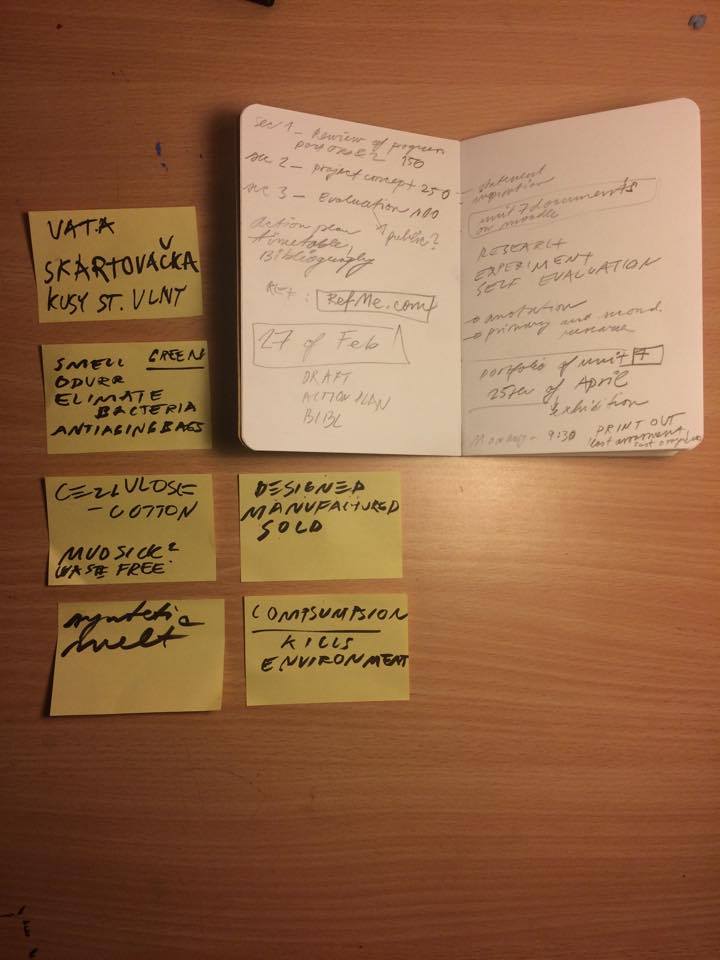 VATA
SKARTOVAČKA
KUSY ST. VLNY
SMELL GREEN
ODURR
ELIMATE
BACTERIA
ANTIAGING BAGS
CELLULOSE
- COTTON
WASTE FREE
DESIGNED
MANUFACTURED
SOLD
syntetic
melt
COMPSUMPSION
KILLS
ENVIRONMENT
sec 1 - Review of progress
150
sec 2 - project concept 250
sec 3 - Evaluation 100
public?
action plan
timetable,
RefMe.com
27 of Feb
DRAFT
ACTION PLAN
BIBL
- statement
inspiration
unit 7 documents
on moodle
RESEARCH
EXPERIMENT
SELF EVALUATION
anotation
primary and second.
research
portfolio of unit 7
of April
exhibition
Monday - 9:30 PRINT OUT